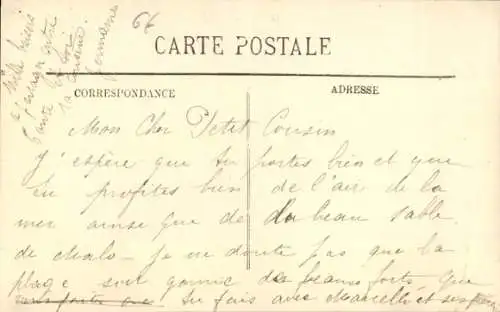 64
CARTE POSTALE
CORRESPONDANCE
ADRESSE
Mille baisers
Germaine
Mon Cher Petit Cousin
J'espère que tu portes bien et que
tu profites bien de l'air de la
mer ainsi que de du beau sable
de Malo - je ne doute pas que la
plage soit garnie de beaux forts que
tu fais avec Marcelle et